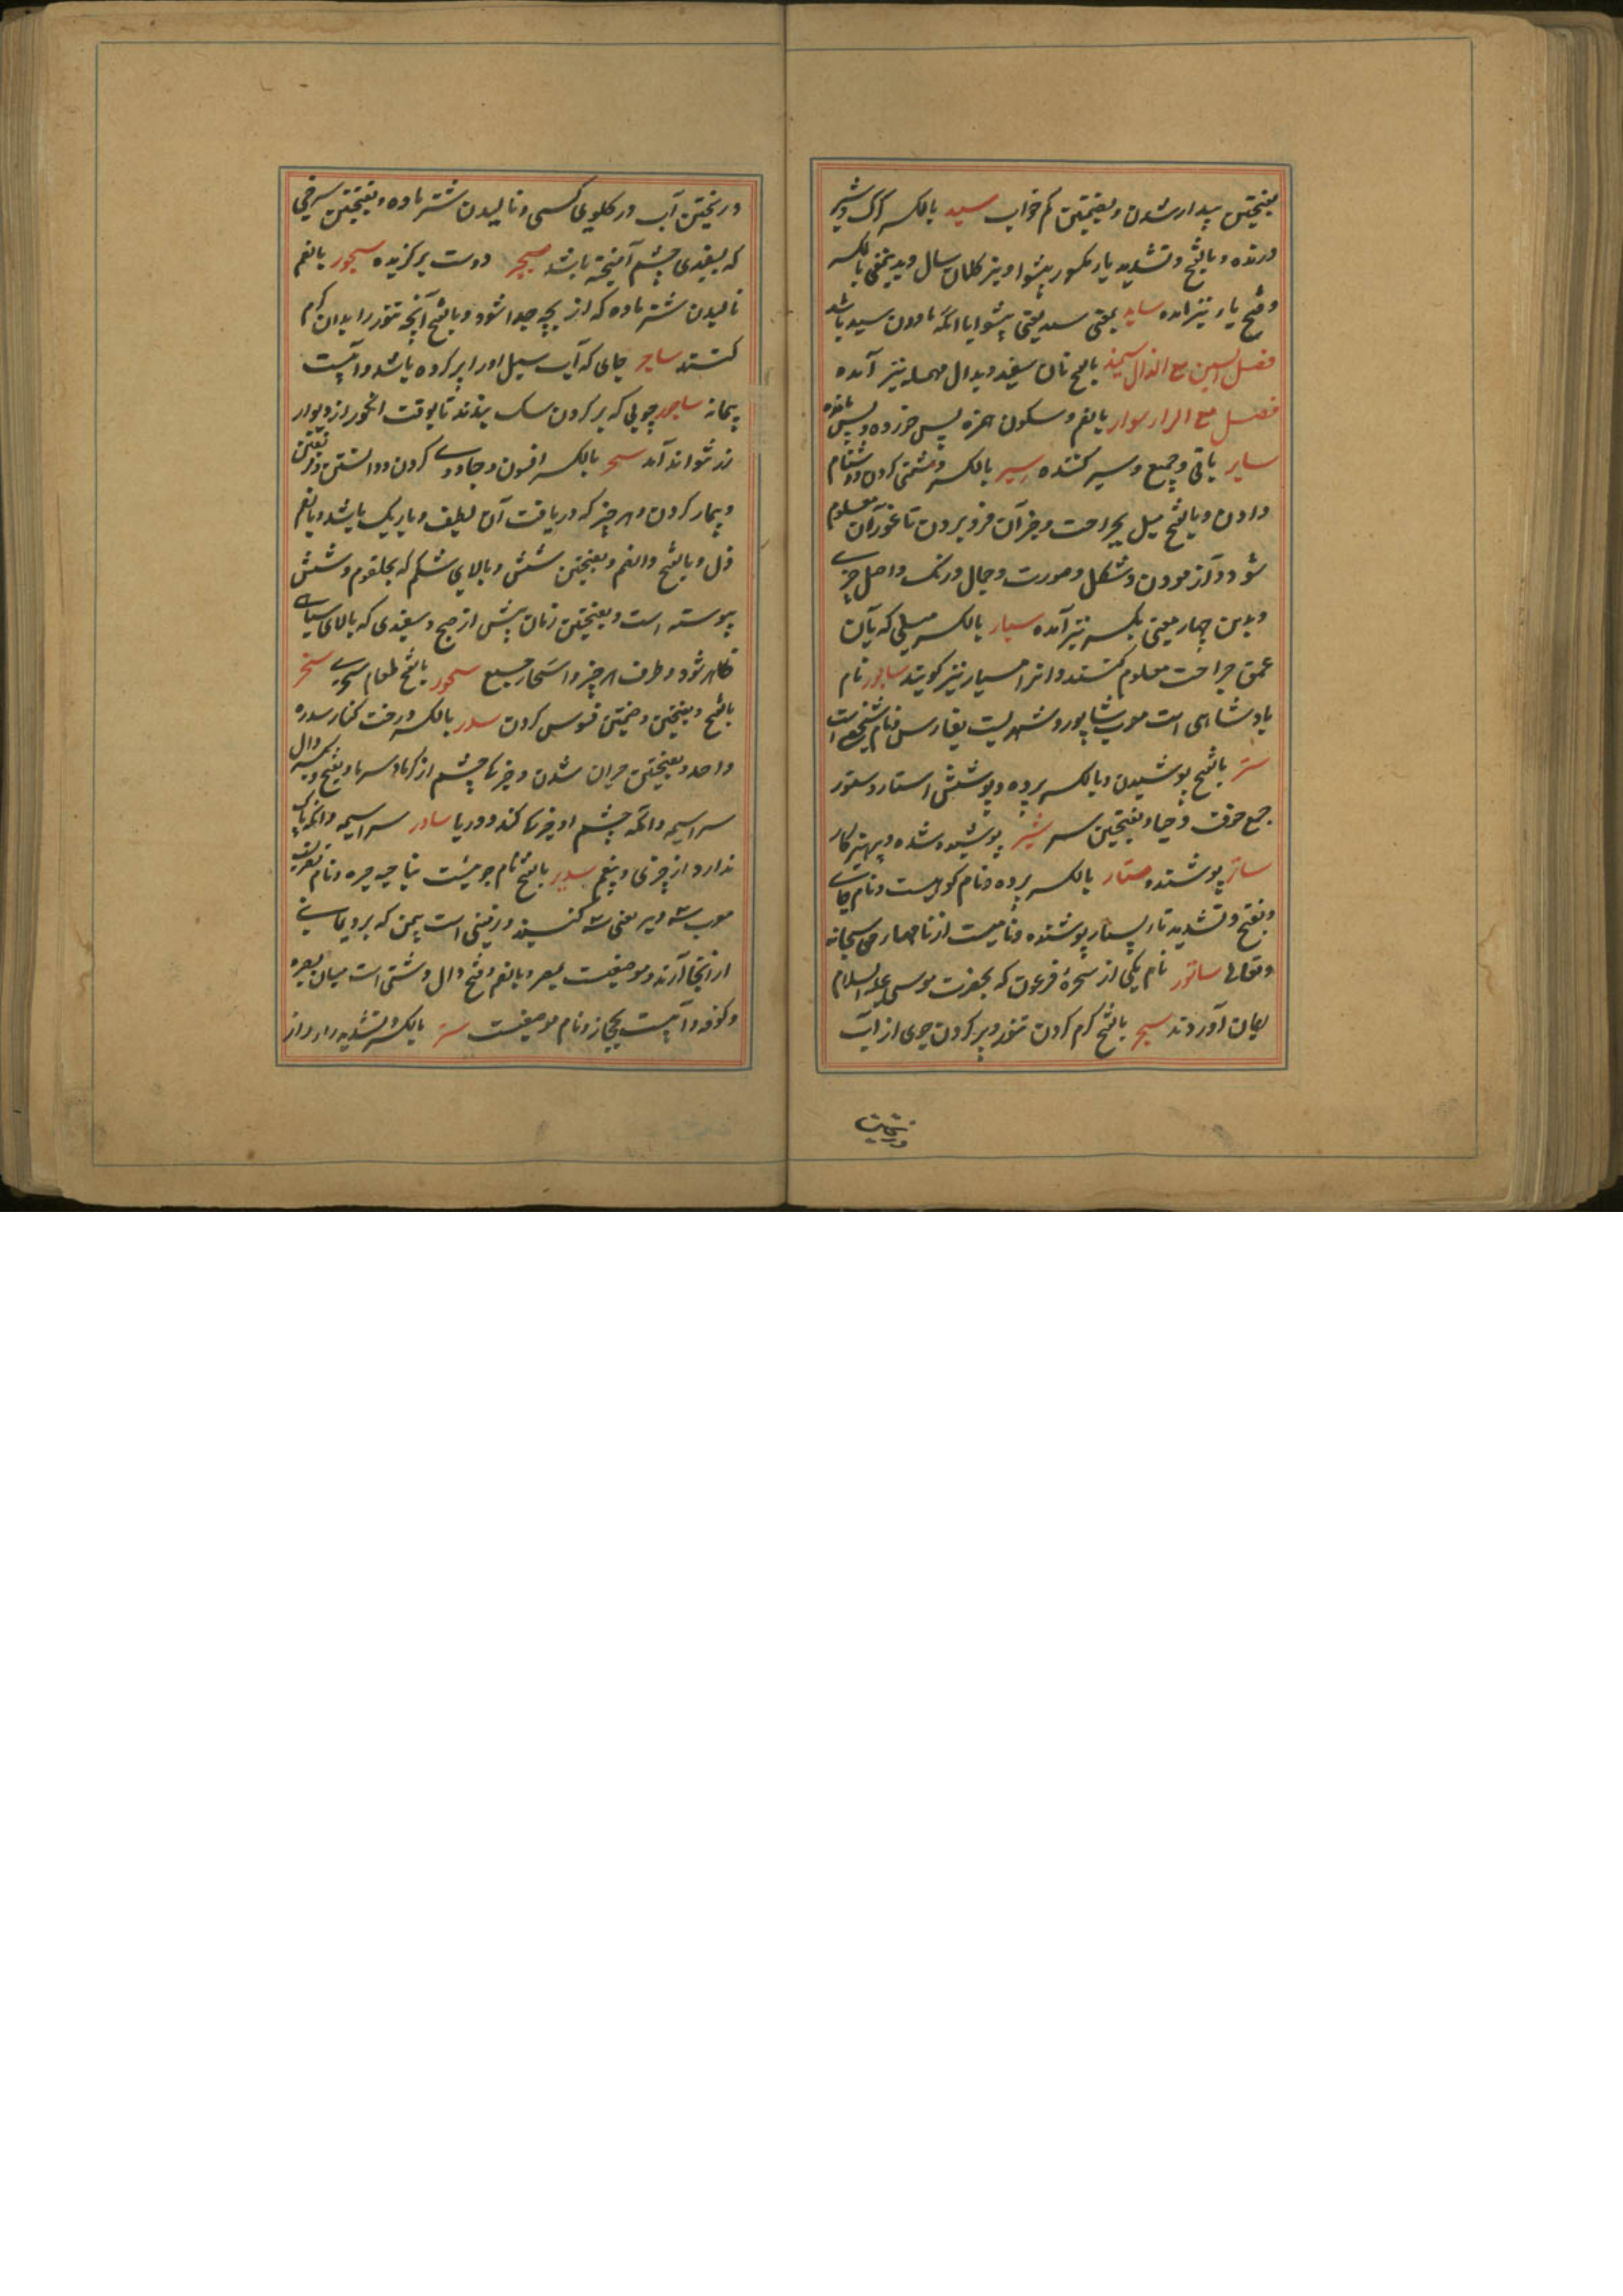 بفتحتین بیدار شدن و بضمتین کم خواب سید بالکسر گرگ و شیر
درنده و بالفتح و تشدید یاء مکسور پیشوا و بز کلان سال و بدینمعنی بالکسر
و فتح یاء نیز امده ساید بمعنی سید یعنی پیشوا یا انکه مادون سید باشد
فصل السین مع الذال سمیذ بالفتح نان سفید و بدال مهمله نیز آمده
فصل مع الراء سوار بالضم و سکون همزه پس خورده و پس مانده
سایر باقی و جمیع و سیر کننده سیر بالکسر و دشنام
دادن و بالفتح میل بجراحت و جز آن فرو بردن تا غور آن معلوم
شود و آزمودن و شکل و صورت و جمال و رنگ و اصل چیزی
و بدین چهار معنی بکسر نیز آمده سبار بالکسر میلی که بآن
عمق جراحت معلوم کنند و انرا مسبار نیز کویند سابور نام
پادشاهی است معرب شاپور و شهریست بفارس و نام شخصی است
ستر بالفتح پوشیدن و بالکسر پرده و پوشش استار و ستور
جمع و خوف و حیا و بفتحتین سپر ستیر پوشیده شده و پرهیزکار
ساتر پوشنده ستار بالکسر پرده و نام کوهیست و نام جائی
و بفتح و تشدید تاء بسیار پوشنده و نامیست از نامهاء حق سبحانه
و تعالی ساتور نام یکی از سحرهٔ فرعون که بحضرت موسی علیه السلام
ایمان آوردند سجر بالفتح گرم کردن تنور و پر کردن جوی از آب
و ریختن
و ریختن آب در کلوی کسی و نالیدن شتر ماده و بفتحتین سرخی
که بسفیدی چشم آمیخته باشد سجیر دوست برگزیده سجور بالضم
نالیدن شتر ماده که از بچه جدا شود و بالفتح آنچه تنور را بدان گرم
کنند ساجر جای که آب سیل او را پر کرده باشد و آبیست
پیمانه ساجور چوبی که بر گردن سگ بندند تا بوقت انگور از دیوار
نتواند آمد سحر بالکسر افسون و جادوی کردن و دانستن و فریفتن
و بیمار کردن و هر چیز که دریافت آن لطیف و باریک باشد و بالضم
دل و بالفتح و الضم و بفتحتین شش و بالای شکم که بحلقوم و شش
پیوسته است و بفتحتین زمان پیش از صبح و سفیدی که بالای سیاهی
ظاهر شود و طرف هر چیز و اسحار جمع سحور بالفتح طعام سحری سخر
بالفتح و بفتحتین و ضمتین فسوس کردن سدر بالکسر درخت کنار سدره
واحد و بفتحتین حیران شدن و خیرگی چشم از گرما و سرما و بفتح و کسر دال
سراسیمه و انکه چشم او خیرگی کند و دریا سادر سراسیمه و انکه باک
ندارد از چیزی و بیغم سدیر بالفتح نام جوئیست بناحیه حیره و نام
معرب سه دیر یعنی سه گنبد و زمینی است بیمن که برد یمانی
از انجا آرند و موضعیست بمصر و بالضم و فتح دال دشتی است میان بصره
و کوفه و آبیست بحجاز و نام موضعیست سر بالکسر و تشدید راء راز